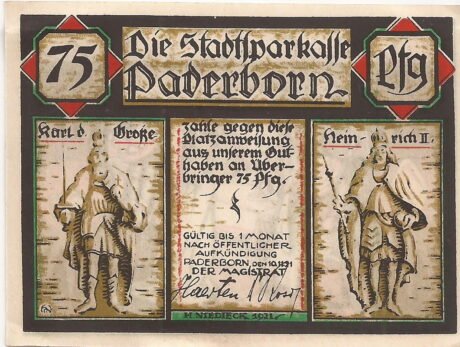 75
Die Stadtsparkasse
Paderborn
Pfg
Karl d. Große
zahle gegen diese
Platzanweisung
aus unserem Gut-
haben an Über-
bringer 75 Pfg.
GÜLTIG BIS 1 MONAT
NACH ÖFFENTLICHER
AUFKÜNDIGUNG
PADERBORN DEN 10.11.21
DER MAGISTRAT
Haerten
Hein-rich II.
H NIEDIECK 1921